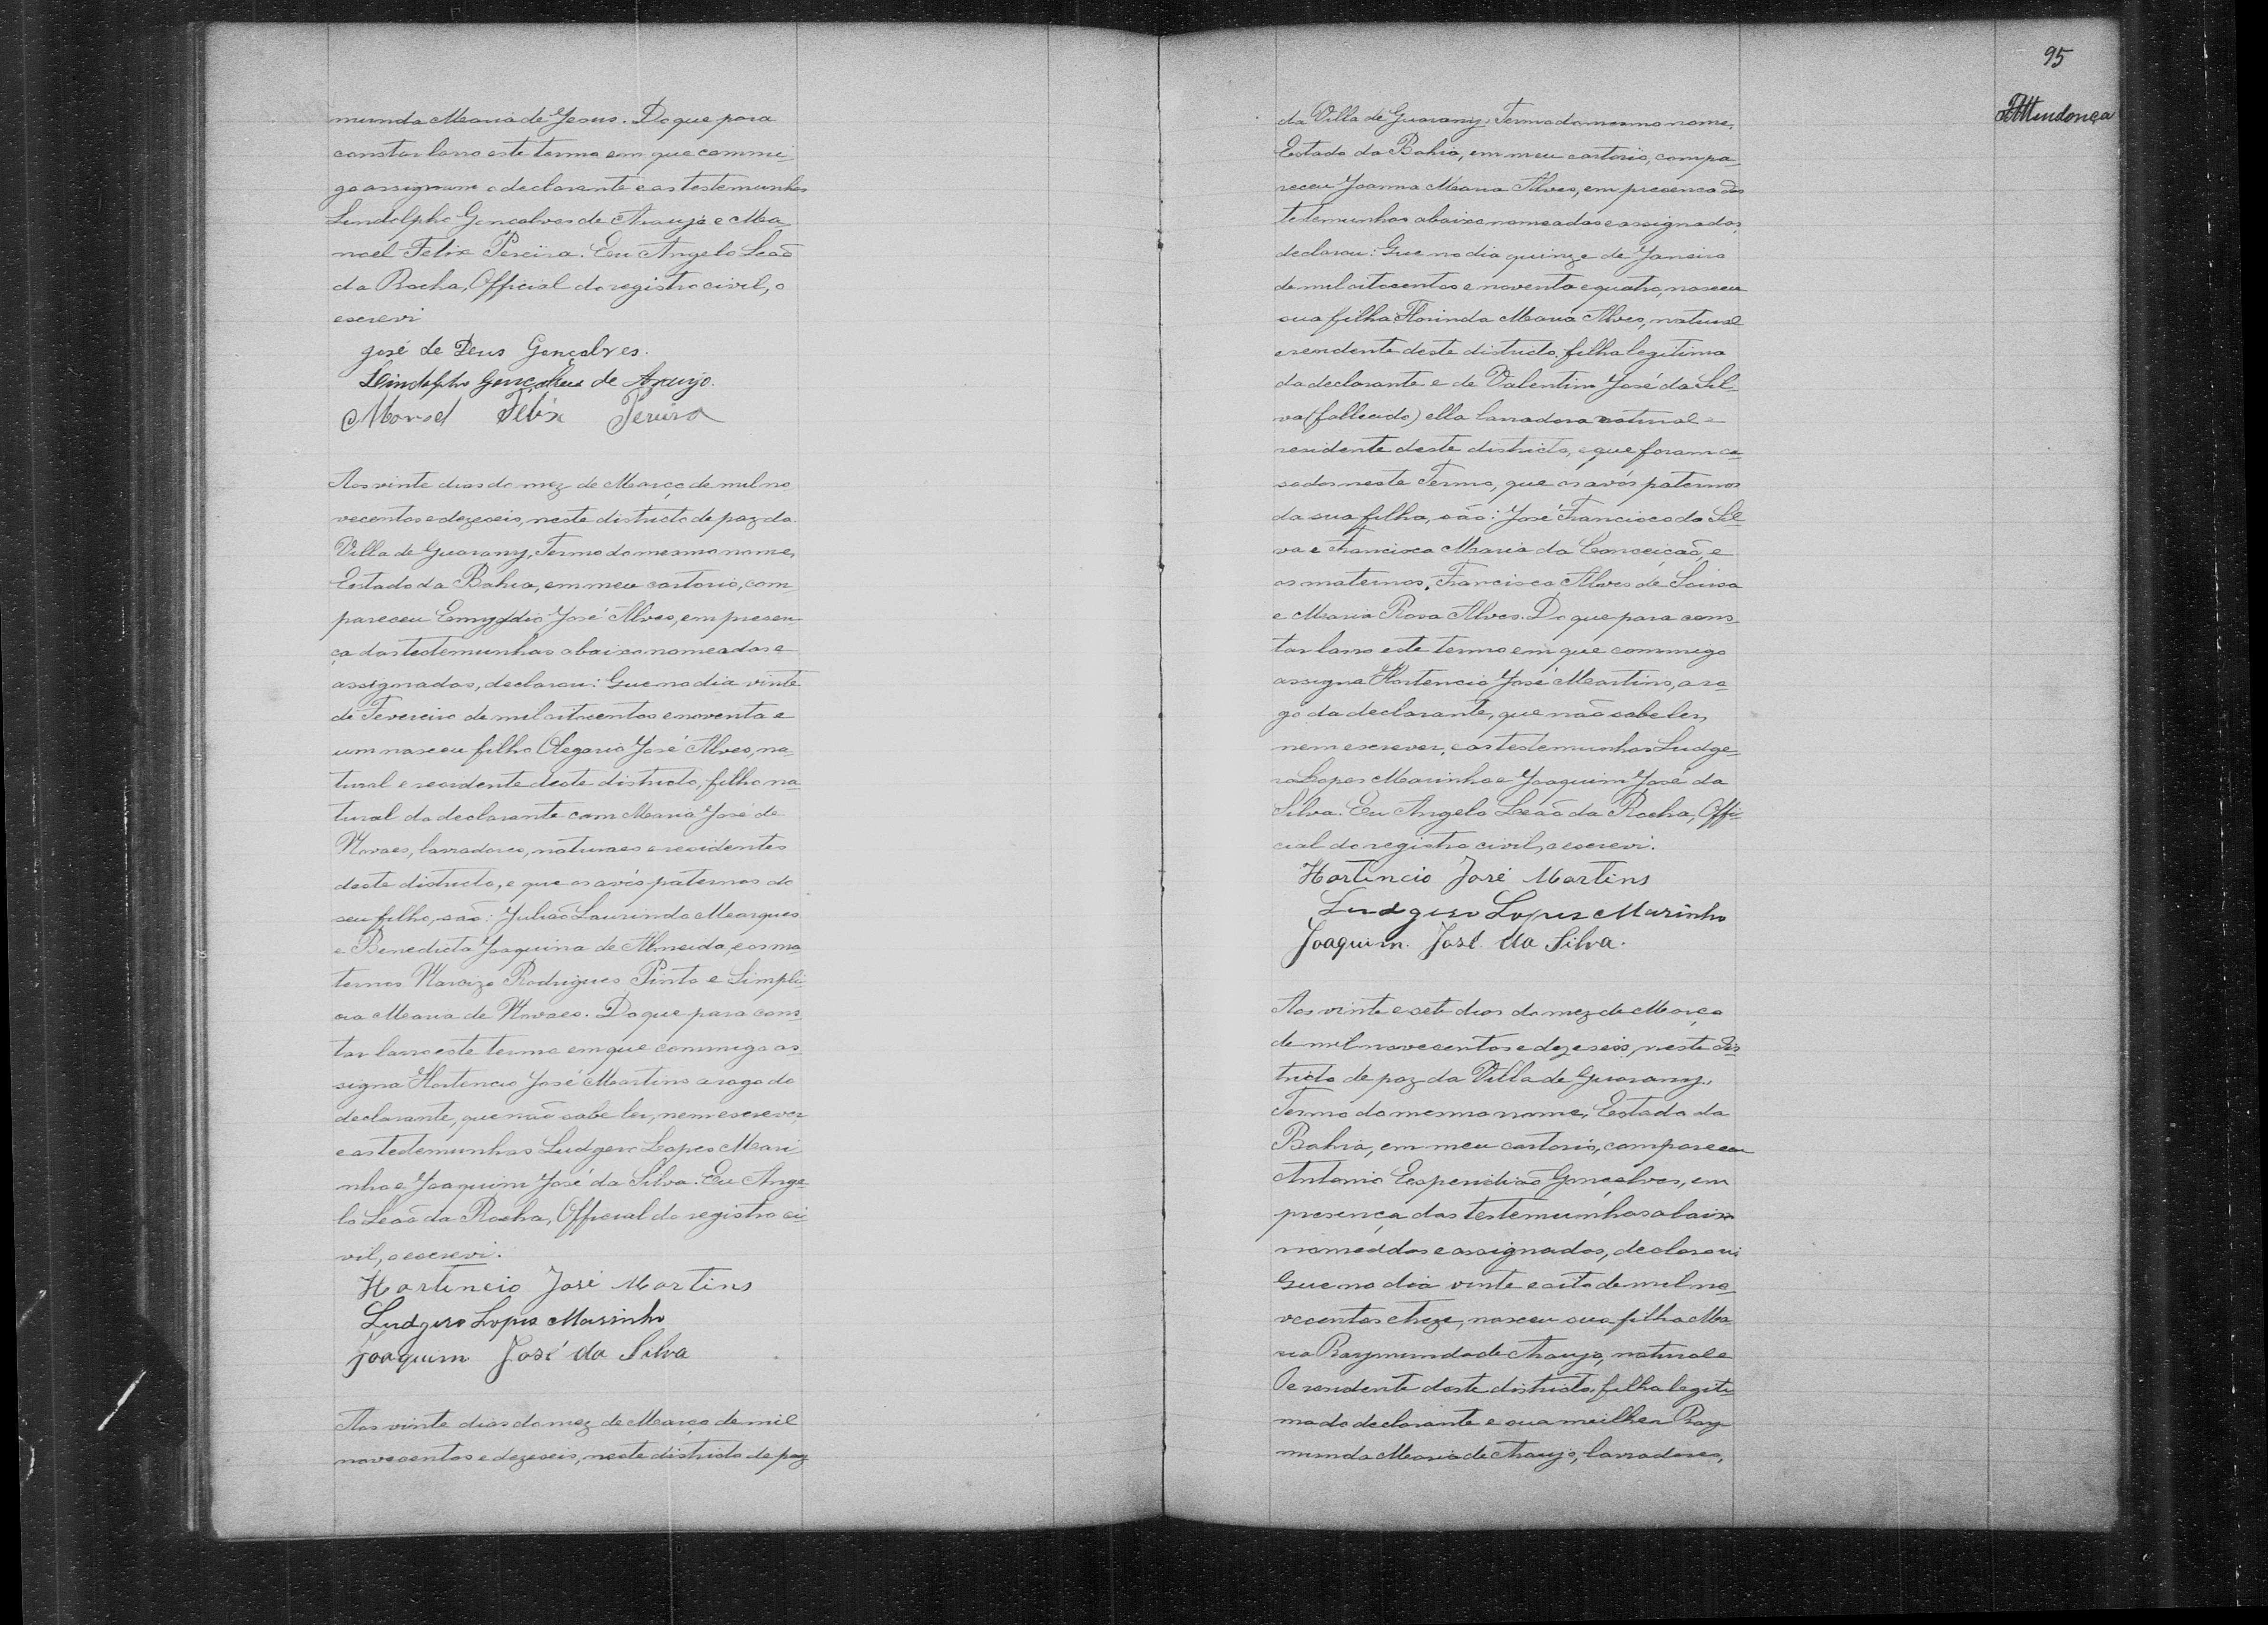 munda Maria de Jesus. Do que para
constar lavro este termo em que commi-
go assignam o declarante e as testemunhas
Lindolpho Gonçalves de Araujo e Ma-
noel Felix Pereira. Eu Angelo Leão
da Rocha, Official do registro civil, o
escrevi
José de Deus Gonçalves.
Lindolpho Gonçalves de Araujo.
Manoel Felix Pereira
Aos vinte dias do mez de Março de mil no-
vecentos e dezeseis, neste districto de paz da
Villa de Guarany, Termo do mesmo nome,
Estado da Bahia, em meu cartorio, com-
pareceu Emygdio José Alves, em presen-
ça das testemunhas abaixo nomeadas e
assignadas, declarou: Que no dia vinte
de Fevereiro de mil oitocentos e noventa e
um nasceu filho Olegario José Alves, na-
tural e residente deste districto, filho na-
tural do declarante com Maria José de
Novaes, lavradores, naturaes e residentes
deste districto, e que os avós paternos do
seu filho, são: Julião Laurindo Marques
e Benedicta Joaquina de Almeida, e os ma-
ternos Narcizo Rodrigues Pinto e Simpli-
cia Maria de Novaes. Do que para cons-
tar lavro este termo em que commigo as-
signa Hortencio José Martins a rogo do
declarante, que não sabe ler, nem escrever,
e as testemunhas Ludgero Lopes Mari-
nho e Joaquim José da Silva. Eu Ange-
lo Leão da Rocha, Official do registro ci-
vil, o escrevi.
Hortencio José Martins
Ludgero Lopes Marinho
Joaquim José da Silva
Aos vinte dias do mez de Março de mil
novecentos e dezeseis, neste districto de paz
95
Mendonça
da Villa de Guarany, Termo do mesmo nome,
Estado da Bahia, em meu cartorio, compa-
receu Joanna Maria Alves, em presença das
testemunhas abaixo nomeadas e assignadas,
declarou: Que no dia quinze de Janeiro
de mil oitocentos e noventa e quatro, nasceu
sua filha Florinda Maria Alves, natural
e residente deste districto, filha legitima
da declarante e de Valentim José da Sil-
va (fallecido) ella lavradora natural e
residente deste districto, e que foram ca-
sados neste Termo, que os avós paternos
da sua filha, são: José Francisco da Sil-
va e Francisca Maria da Conceição, e
os maternos, Francisco Alves de Sousa
e Maria Rosa Alves. Do que para cons-
tar lavro este termo em que commigo
assigna Hortencio José Martins, a ro-
go da declarante, que não sabe ler,
nem escrever, e as testemunhas Ludge-
ro Lopes Marinho e Joaquim José da
Silva. Eu Angelo Leão da Rocha, Offi-
cial do registro civil, o escrevi.
Hortencio José Martins
Ludgero Lopes Marinho
Joaquim José da Silva.
Aos vinte e sete dias do mez de Março
de mil novecentos e dezeseis, neste dis-
tricto de paz da Villa de Guarany,
Termo do mesmo nome, Estado da
Bahia, em meu cartorio, compareceu
Antonio Espiridião Gonçalves, em
presença das testemunhas abaixo
nomeadas e assignadas, declarou:
Que no dia vinte e oito de mil no-
vecentos e treze, nasceu sua filha Ma-
ria Raymunda de Araujo, natural e
residente deste districto, filha legiti-
ma do declarante e sua mulher Ray-
munda Maria de Araujo, lavradores,